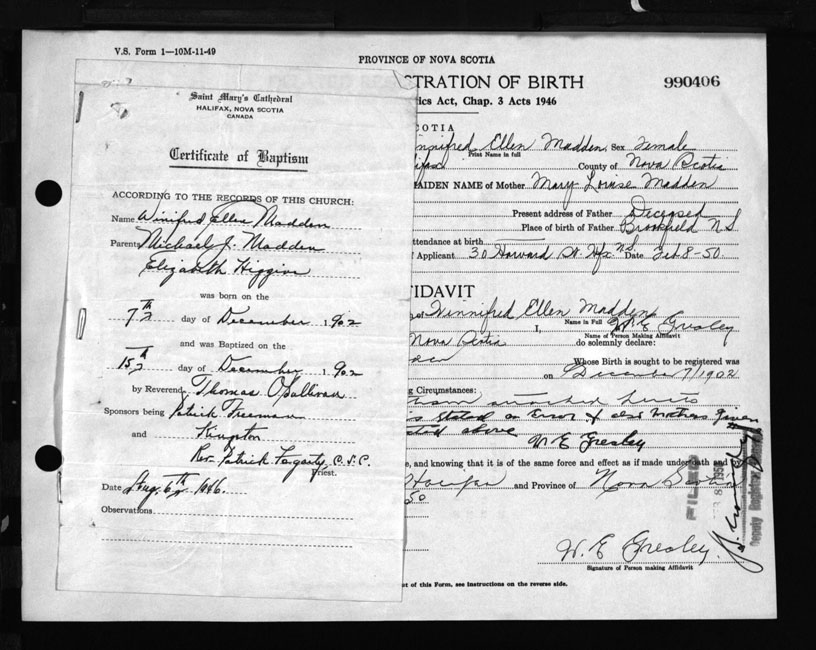 V.S. Form 1—10M-11-49
PROVINCE OF NOVA SCOTIA
STRATION OF BIRTH
990406
ics Act, Chap. 3 Acts 1946
Saint Mary's Cathedral
HALIFAX, NOVA SCOTIA
CANADA
Certificate of Baptism
ACCORDING TO THE RECORDS OF THIS CHURCH:
Name Winifred Ellen Madden
Parents Michael J. Madden
Elizabeth Higgins
was born on the
7th day of December 1902
and was Baptized on the
15th day of December 1902
by Reverend Thomas O'Sullivan
Sponsors being Patrick Freeman
and Kingston
Rev. Patrick Fogarty, C.S.C.
Priest.
Date Aug. 6th 1946.
Observations
COTIA
nnifred Ellen Madden, Sex Female
Print Name in full
ifax County of Nova Scotia
AIDEN NAME of Mother Mary Louise Madden
Present address of Father Deceased
Place of birth of Father Brookfield N.S.
ttendance at birth
Applicant 30 Harvard St. Hfx. N.S. Date Feb 8-50.
FIDAVIT
Winnifred Ellen Madden
Name in Full
I, W. E. Gresley
Name of Person Making Affidavit
Nova Scotia do solemnly declare:
Whose Birth is sought to be registered was
on December 7/1902
g Circumstances:
attached hereto
is stated in error & also mothers given
stated above
W E Gresley
e, and knowing that it is of the same force and effect as if made under oath and by
Halifax and Province of Nova Scotia
50
FILED
FEB 8 195
Deputy Registrar General
W. E Gresley.
Signature of Person making Affidavit
t of this Form, see Instructions on the reverse side.